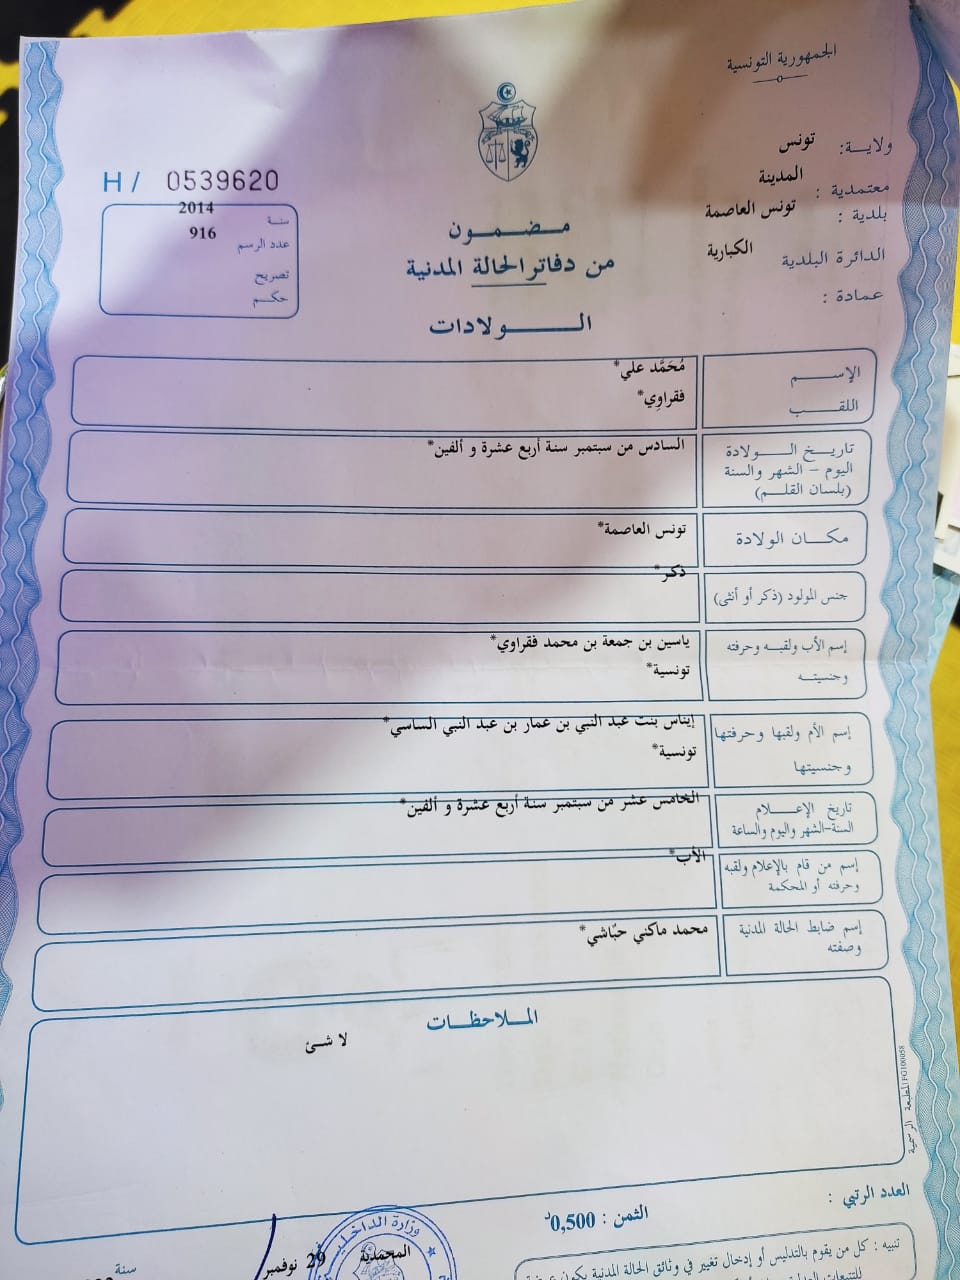 الجمهورية التونسية
ولاية: تونس
معتمدية : المدينة
بلدية : تونس العاصمة
الدائرة البلدية الكبارية
عمادة :
H / 0539620
سنة 2014
عدد الرسم 916
تصريح
حكم
مضمون
من دفاتر الحالة المدنية
الولادات
الإسم مُحَمَّد علي*
اللقب فقراوِي*
تاريخ الولادة
اليوم – الشهر والسنة
(بلسان القلم)
السادس من سبتمبر سنة أربع عشرة و ألفين*
مكان الولادة تونس العاصمة*
جنس المولود (ذكر أو أنثى) ذكر*
إسم الأب ولقبه وحرفته
وجنسيته
ياسين بن جمعة بن محمد فقراوي*
تونسية*
إسم الأم ولقبها وحرفتها
وجنسيتها
إيناس بنت عبد النبي بن عمار بن عبد النبي الساسي*
تونسية*
تاريخ الإعلام
السنة-الشهر واليوم والساعة
الخامس عشر من سبتمبر سنة أربع عشرة و ألفين*
إسم من قام بالإعلام ولقبه
وحرفته أو المحكمة
الأب*
إسم ضابط الحالة المدنية
وصفته
محمد ماكني حبّاشي*
الملاحظات
لا شئ
المطبعة الرسمية FG100058
العدد الرتبي :
الثمن : 0,500د
تنبيه : كل من يقوم بالتدليس أو إدخال تغيير في وثائق الحالة المدنية يكون عرضة
وزارة الداخلية
المحمدية
29 نوفمبر
سنة